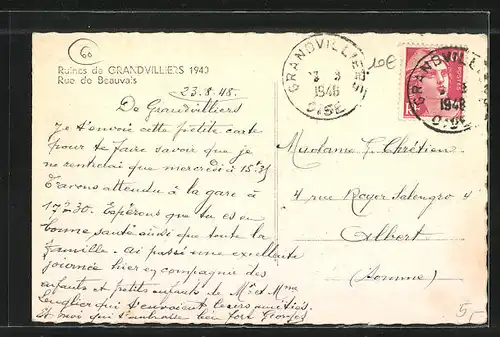 60
Ruines de GRANDVILLIERS 1940
Rue de Beauvais
23.8.48.
De Grandvilliers
Je t'envoie cette petite carte
pour te faire savoir que je
ne rentrerai que mercredi à 15h31
attendu à la gare à
17h30. Espérons que tu es en
bonne santé ainsi que toute la
famille. ai passé une excellente
journée hier en compagnie des
enfants et petits enfants de Mr et Mme
qui t'envoient leurs amitiés.
Et moi qui t'embrasse bien fort Georges
GRANDVILLIERS
1948
OISE
10E
GRANDVILLIERS
1948
OISE
Madame F. Chrétien
4 rue Roger Salengro 4
Albert
(Somme)